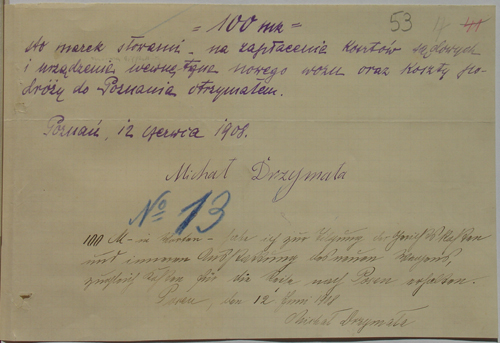 = 100 mk =
53
sto marek słowami na zapłacenie kosztów sądowych
i urządzenie wewnętrzne nowego wozu oraz koszty po-
dróży do Poznania otrzymałem.
Poznań, 12 czerwca 1908.
Michał Drzymała
No 13
100 M – in Worten – habe ich zur
und inneren des neuen Wagens,
für die Reise nach Posen erhalten.
Posen, den 12 Juni 1908
Michał Drzymała